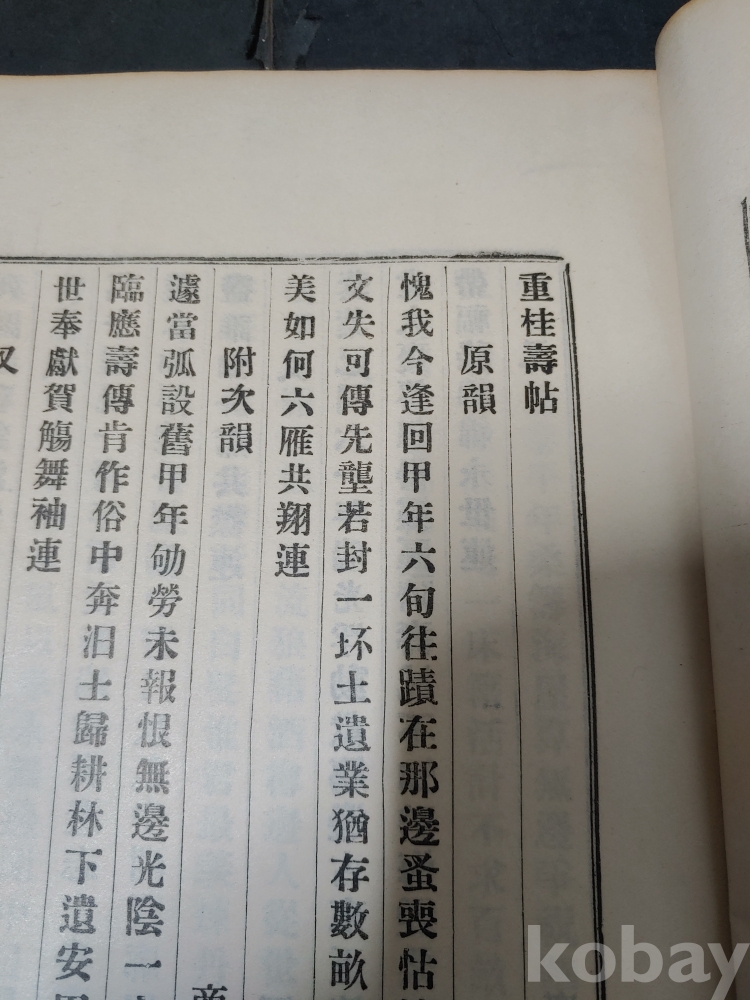 重桂壽帖
原韻
愧我今逢回甲年六旬往蹟在那邊蚤喪怙
文失可傳先壟若封一坏土遺業猶存數畝
美如何六雁共翔連
附次韻
遽當弧設舊甲年劬勞未報恨無邊光陰一
臨應壽傳肯作俗中奔汨士歸耕林下遺安
世奉獻賀觴舞袖連
又
kobay